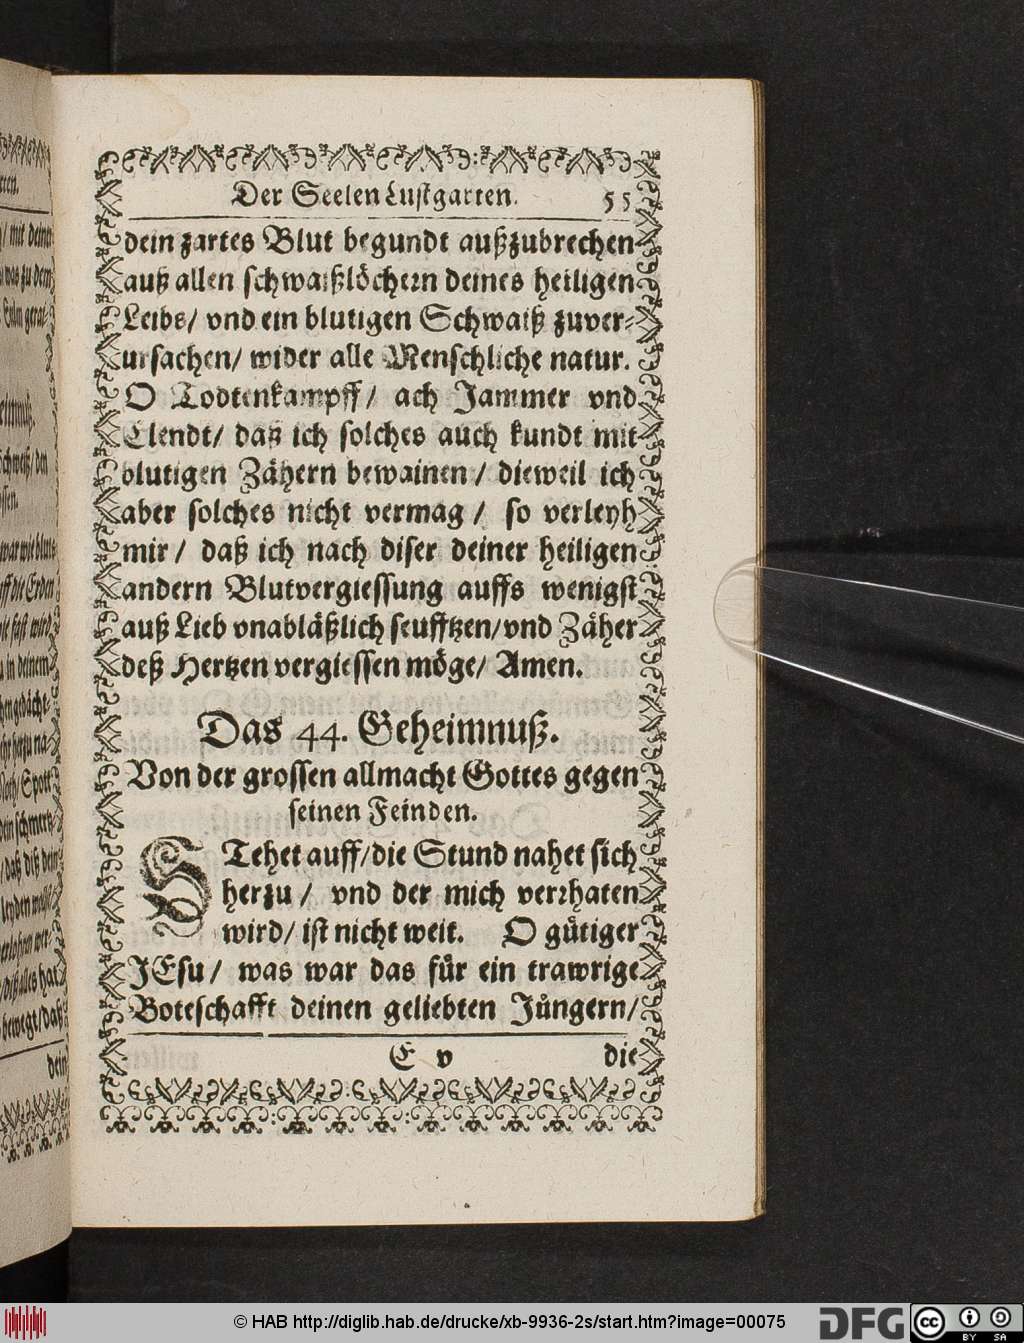 Der Seelen Lustgarten. 55
dein zartes Blut begundt außzubrechen
auß allen schwaißlöchern deines heiligen
Leibs/ vnd ein blutigen Schwaiß zuver-
ursachen/ wider alle Menschliche natur.
O Todtenkampff/ ach Jammer vnd
Elendt/ daß ich solches auch kundt mit
blutigen Zähern bewainen/ dieweil ich
aber solches nicht vermag/ so verleyh
mir/ daß ich nach diser deiner heiligen
andern Blutvergiessung auffs wenigst
auß Lieb vnabläßlich seufftzen/ vnd Zäher
deß Hertzen vergiessen möge/ Amen.
Das 44. Geheimnuß.
Von der grossen allmacht Gottes gegen
seinen Feinden.
STehet auff/ die Stund nahet sich
herzu/ vnd der mich verrhaten
wird/ ist nicht weit. O gütiger
JEsu/ was war das für ein trawrige
Boteschafft deinen geliebten Jüngern/
E v die
© HAB http://diglib.hab.de/drucke/xb-9936-2s/start.htm?image=00075
DFG
cc BY SA